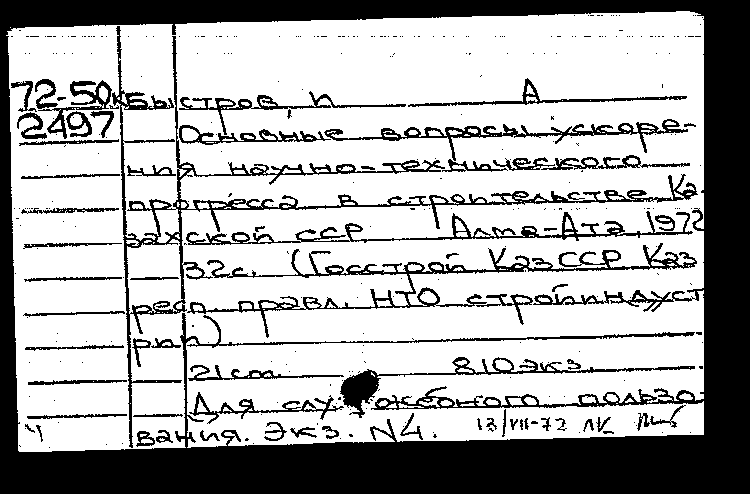 72-50к Быстров, П А
2497 Основные вопросы ускоре-
ния научно-технического
прогресса в строительстве Ка-
захской ССР. Алма-Ата, 1972
32с. (Госстрой КазССР Каз
респ правл. НТО стройиндуст
рии).
21см. 810экз.
Для служебного пользо-
вания. Экз. N4. 13/VII-72